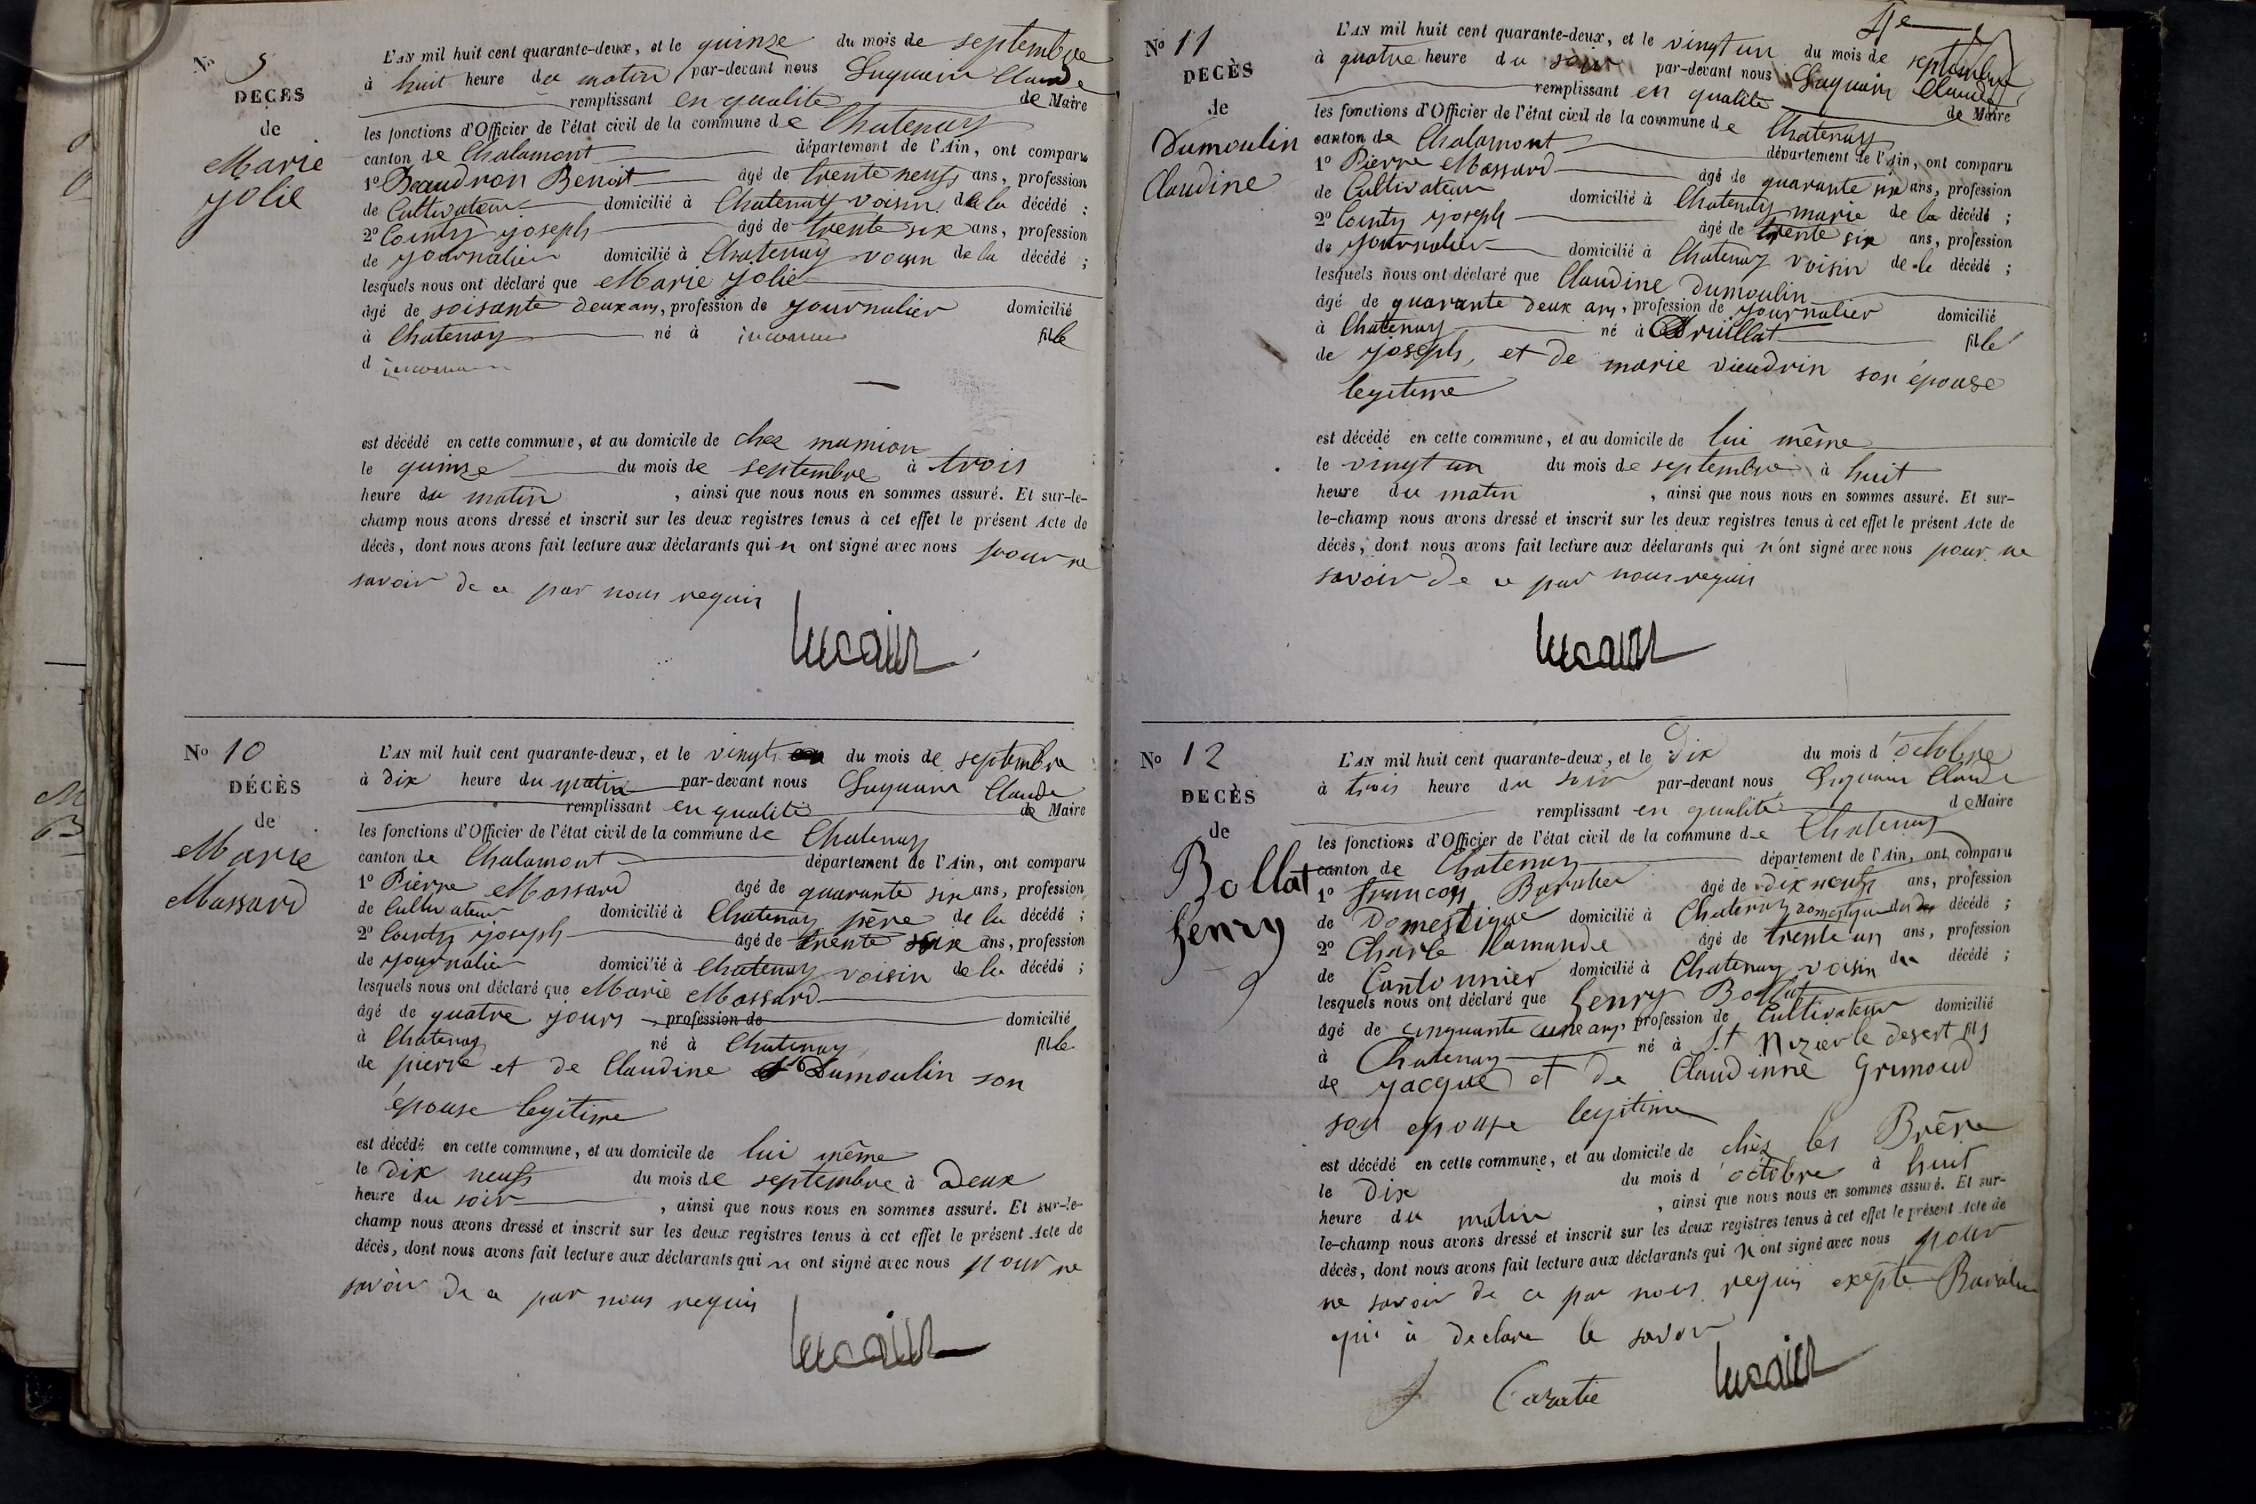 No 9
DÉCÈS
de
Marie
Jolie
L'AN mil huit cent quarante-deux, et le quinze du mois de septembre
à huit heure du matin par-devant nous Luquain Claude
remplissant en qualite de Maire
les fonctions d'Officier de l'état civil de la commune de Chatenay
canton de Chalamont département de l'Ain, ont comparu
1o Beaudron Benoit âgé de trente neufs ans, profession
de Cultivateur domicilié à Chatenay voisin de la décédé ;
2o Comty joseph âgé de trente six ans, profession
de journalier domicilié à Chatenay voisin de la décédé ;
lesquels nous ont déclaré que Marie Jolie
âgé de soisante deux ans, profession de journalier domicilié
à Chatenay né à inconnu fille
d inconnu
est décédé en cette commune, et au domicile de chez mumion
le quinze du mois de septembre à trois
heure du matin , ainsi que nous nous en sommes assuré. Et sur-le-
champ nous avons dressé et inscrit sur les deux registres tenus à cet effet le présent Acte de
décès, dont nous avons fait lecture aux déclarants qui n ont signé avec nous pour ne
savoir de ce par nous requis
No 10
DÉCÈS
de
Marie
Massard
L'AN mil huit cent quarante-deux, et le vingt du mois de septembre
à dix heure du matin par-devant nous Luquain Claude
remplissant en qualité de Maire
les fonctions d'Officier de l'état civil de la commune de Chatenay
canton de Chalamont département de l'Ain, ont comparu
1o Pierre Massard âgé de quarante six ans, profession
de Cultivateur domicilié à Chatenay père de la décédé ;
2o Comty joseph âgé de trente six ans, profession
de journalier domicilié à Chatenay voisin de la décédé ;
lesquels nous ont déclaré que Marie Massard
âgé de quatre jours , profession de domicilié
à Chatenay né à Chatenay fille
de pierre et de Claudine Dumoulin son
épouse legitime
est décédé en cette commune, et au domicile de lui même
le dix neufs du mois de septembre à Deux
heure du soir , ainsi que nous nous en sommes assuré. Et sur-le-
champ nous avons dressé et inscrit sur les deux registres tenus à cet effet le présent Acte de
décès, dont nous avons fait lecture aux déclarants qui n ont signé avec nous pour ne
savoir de ce par nous requis
No 11
DÉCÈS
de
Dumoulin
Claudine
L'AN mil huit cent quarante-deux, et le vingt un du mois de septembre
à quatre heure du soir par-devant nous Luquain Claude
remplissant en qualite de Maire
les fonctions d'Officier de l'état civil de la commune de Chatenay
canton de Chalamont département de l'Ain, ont comparu
1o Pierre Massard âgé de quarante six ans, profession
de Cultivateur domicilié à Chatenay marie de la décédé ;
2o Comty joseph âgé de trente six ans, profession
de journalier domicilié à Chatenay voisin de la décédé ;
lesquels nous ont déclaré que Claudine Dumoulin
âgé de quarante deux ans, profession de journalier domicilié
à Chatenay né à Druillat fille
de joseph, et de marie vieudrin son épouse
legitime
est décédé en cette commune, et au domicile de lui même
le vingt un du mois de septembre à huit
heure du matin , ainsi que nous nous en sommes assuré. Et sur-
le-champ nous avons dressé et inscrit sur les deux registres tenus à cet effet le présent Acte de
décès, dont nous avons fait lecture aux déclarants qui n'ont signé avec nous pour ne
savoir de ce par nous requis
No 12
DÉCÈS
de
Bollat
henry
L'AN mil huit cent quarante-deux, et le dix du mois d'octobre
à trois heure du soir par-devant nous Luquain Claude
remplissant en qualité de Maire
les fonctions d'Officier de l'état civil de la commune de Chatenay
canton de Chatenay département de l'Ain, ont comparu
1o francois âgé de dix neufs ans, profession
de Domestique domicilié à Chatenay domestique du décédé ;
2o Charle Lamande âgé de trente un ans, profession
de Cantonnier domicilié à Chatenay voisin du décédé ;
lesquels nous ont déclaré que henry Bollat
âgé de cinquante une ans, profession de Cultivateur domicilié
à Chatenay né à St Nizier le desert fils
de jacque et de Claudinne Grimoud
son epouse legitime
est décédé en cette commune, et au domicile de chèz les Brère
le Dix du mois d'octobre à huit
heure du matin , ainsi que nous nous en sommes assuré. Et sur-
le-champ nous avons dressé et inscrit sur les deux registres tenus à cet effet le présent Acte de
décès, dont nous avons fait lecture aux déclarants qui n ont signé avec nous pour
ne savoir de ce par nous requis exepte
qui à declare le savoir